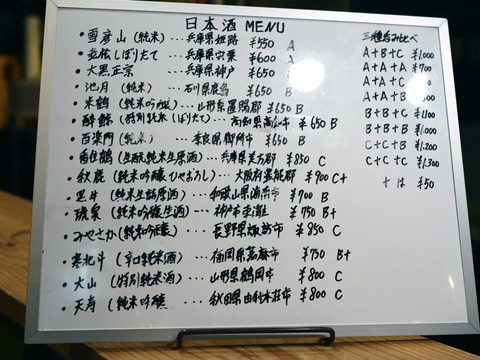 日本酒 MENU
・雪彦山 (純米) ... 兵庫県姫路 ¥550 A
・しぼりたて ... 兵庫県宍粟 ¥600 A
・大黒正宗 ... 兵庫県神戸 ¥650
・池月 (純米) ... 石川県 ¥650 B
・米鶴 (純米吟醸) ... 山形県置賜郡 ¥650 B
・酔鯨 (特別純米 しぼりたて) ... 高知県高知市 ¥650 B
・百楽門 (純米) ... 奈良県御所市 ¥650 B
・香住鶴 (生酛純米生原酒) ... 兵庫県美方郡 ¥850 C
・秋鹿 (純米吟醸 ひやおろし) ... 大阪府豊能郡 ¥900 C+
・黒牛 (純米生詰原酒) ... 和歌山県海南市 ¥700 B
・琥泉 (純米吟醸生酒) ... 神戸市東灘 ¥750 B+
・みやさか (純米吟醸) ... 長野県諏訪市 ¥850 C
・寒北斗 (辛口純米酒) ... 福岡県嘉麻市 ¥750 B+
・大山 (特別純米酒) ... 山形県鶴岡市 ¥800 C
・天寿 (純米吟醸 ... 秋田県由利本荘市 ¥800 C
三種呑みくらべ
A+B+C ¥1,000
A+A+A ¥700
A+A+B
A+A+C
A+B+B
B+B+C ¥1,100
B+B+B ¥1,000
C+C+B ¥1,200
C+C+C ¥1,300
+は ¥50